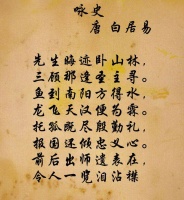 咏史
唐 白居易
先生晦迹卧山林，
三顾那逢圣主寻。
鱼到南阳方得水，
龙飞天汉便为霖。
托孤既尽殷勤礼，
报国还倾忠义心。
前后出师遗表在，
令人一览泪沾襟。